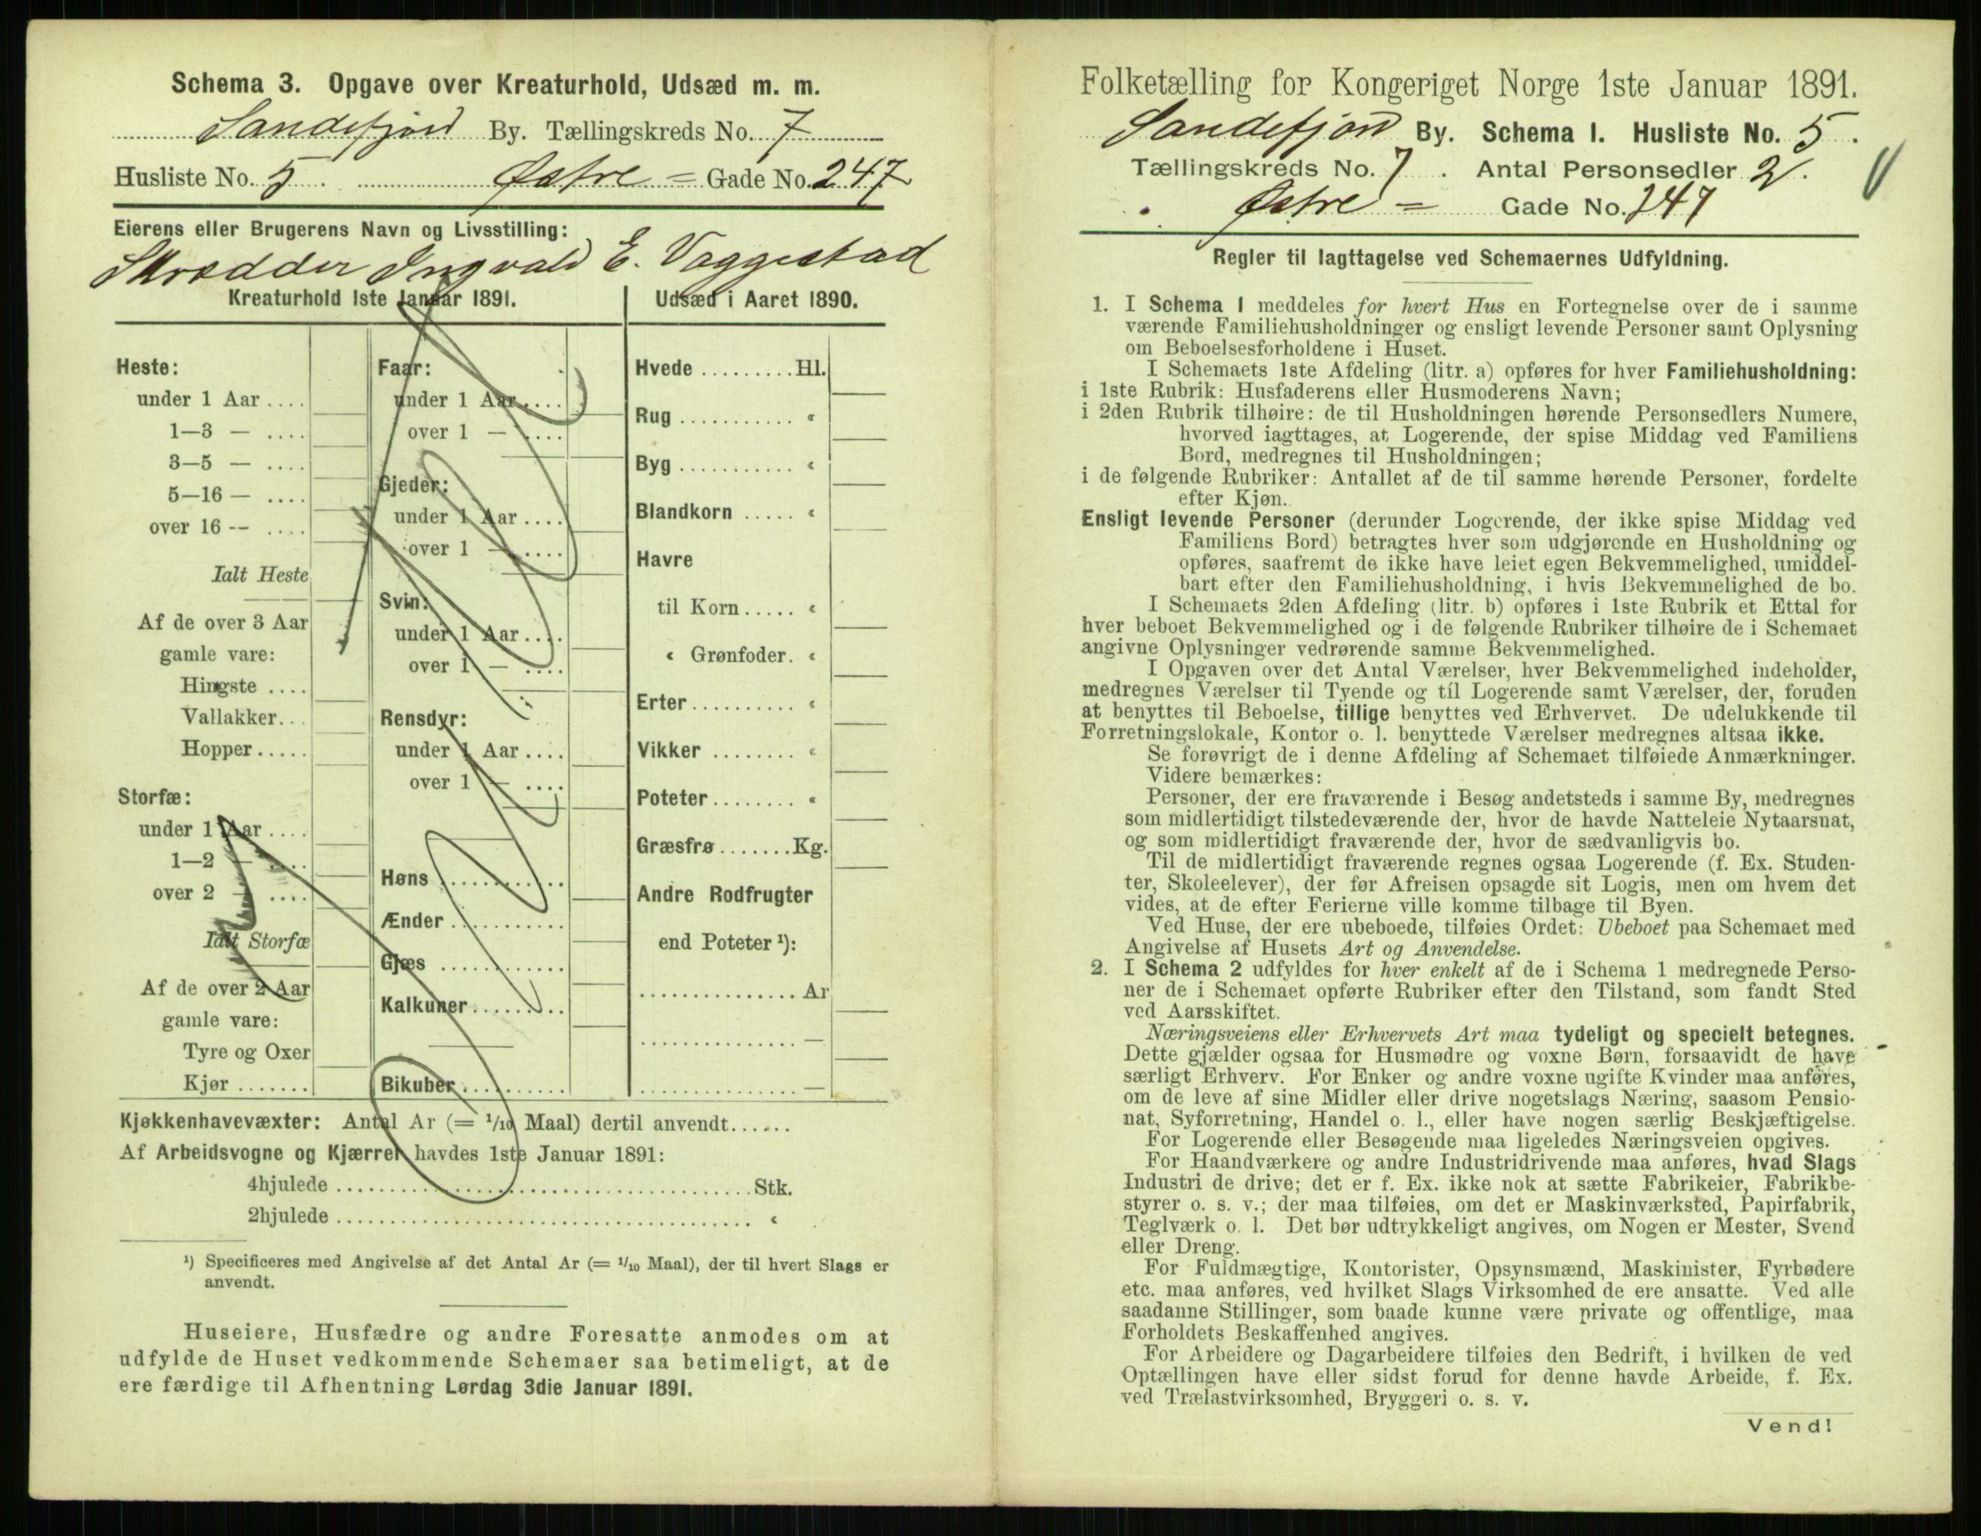 Schema 3. Opgave over Kreaturhold, Udsæd m. m.
Sandefjord By. Tællingskreds No. 7
Husliste No. 5. Østre = Gade No. 247
Eierens eller Brugerens Navn og Livsstilling:
Skrædder Ingvald E. Vaggestad
Kreaturhold 1ste Januar 1891.
Heste:
under 1 Aar ....
1—3 — ....
3—5 — ....
5—16 — ....
over 16 — ....
Ialt Heste
Af de over 3 Aar
gamle vare:
Hingste ....
Vallakker...
Hopper.....
Storfæ:
under 1 Aar ....
1—2 — ....
over 2 — ....
Ialt Storfæ
Af de over 2 Aar
gamle vare:
Tyre og Oxer
Kjør .......
Faar:
under 1 Aar....
over 1 — ....
Gjeder:
under 1 Aar ....
over 1 — ....
Svin:
under 1 Aar....
over 1 — ....
Rensdyr:
under 1 Aar ....
over 1 — ....
Høns ............
Ænder ...........
Gjæs ............
Kalkuner.........
Bikuber..........
Udsæd i Aaret 1890.
Hvede .........Hl.
Rug ........... «
Byg ........... «
Blandkorn ..... «
Havre
til Korn..... «
« Grønfoder. «
Erter.......... «
Vikker ........ «
Poteter........ «
Græsfrø .......Kg.
Andre Rodfrugter
end Poteter ¹):
............... Ar
............... —
............... —
Kjøkkenhavevæxter: Antal Ar (= 1/10 Maal) dertil anvendt......
Af Arbeidsvogne og Kjærrer havdes 1ste Januar 1891:
4hjulede ........................................Stk.
2hjulede ........................................ «
¹) Specificeres med Angivelse af det Antal Ar (= 1/10 Maal), der til hvert Slags er
anvendt.
Huseiere, Husfædre og andre Foresatte anmodes om at
udfylde de Huset vedkommende Schemaer saa betimeligt, at de
ere færdige til Afhentning Lørdag 3die Januar 1891.
Folketælling for Kongeriget Norge 1ste Januar 1891.
Sandefjord By. Schema 1. Husliste No. 5.
Tællingskreds No. 7. Antal Personsedler 2.
Østre = Gade No. 247
Regler til Iagttagelse ved Schemaernes Udfyldning.
1. I Schema 1 meddeles for hvert Hus en Fortegnelse over de i samme
værende Familiehusholdninger og ensligt levende Personer samt Oplysning
om Beboelsesforholdene i Huset.
I Schemaets 1ste Afdeling (litr. a) opføres for hver Familiehusholdning:
i 1ste Rubrik: Husfaderens eller Husmoderens Navn;
i 2den Rubrik tilhøire: de til Husholdningen hørende Personsedlers Numere,
hvorved iagttages, at Logerende, der spise Middag ved Familiens
Bord, medregnes til Husholdningen;
i de følgende Rubriker: Antallet af de til samme hørende Personer, fordelte
efter Kjøn.
Ensligt levende Personer (derunder Logerende, der ikke spise Middag ved
Familiens Bord) betragtes hver som udgjørende en Husholdning og
opføres, saafremt de ikke have leiet egen Bekvemmelighed, umiddel-
bart efter den Familiehusholdning, i hvis Bekvemmelighed de bo.
I Schemaets 2den Afdeling (litr. b) opføres i 1ste Rubrik et Ettal for
hver beboet Bekvemmelighed og i de følgende Rubriker tilhøire de i Schemaet
angivne Oplysninger vedrørende samme Bekvemmelighed.
I Opgaven over det Antal Værelser, hver Bekvemmelighed indeholder,
medregnes Værelser til Tyende og til Logerende samt Værelser, der, foruden
at benyttes til Beboelse, tillige benyttes ved Erhvervet. De udelukkende til
Forretningslokale, Kontor o. l. benyttede Værelser medregnes altsaa ikke.
Se forøvrigt de i denne Afdeling af Schemaet tilføiede Anmærkninger.
Videre bemærkes:
Personer, der ere fraværende i Besøg andetsteds i samme By, medregnes
som midlertidigt tilstedeværende der, hvor de havde Natteleie Nytaarsnat,
og som midlertidigt fraværende der, hvor de sædvanligvis bo.
Til de midlertidigt fraværende regnes ogsaa Logerende (f. Ex. Studen-
ter, Skoleelever), der før Afreisen opsagde sit Logis, men om hvem det
vides, at de efter Ferierne ville komme tilbage til Byen.
Ved Huse, der ere ubeboede, tilføies Ordet: Ubeboet paa Schemaet med
Angivelse af Husets Art og Anvendelse.
2. I Schema 2 udfyldes for hver enkelt af de i Schema 1 medregnede Perso-
ner de i Schemaet opførte Rubriker efter den Tilstand, som fandt Sted
ved Aarsskiftet.
Næringsveiens eller Erhvervets Art maa tydeligt og specielt betegnes.
Dette gjælder ogsaa for Husmødre og voxne Børn, forsaavidt de have
særligt Erhverv. For Enker og andre voxne ugifte Kvinder maa anføres,
om de leve af sine Midler eller drive nogetslags Næring, saasom Pensio-
nat, Syforretning, Handel o. l., eller have nogen særlig Beskjæftigelse.
For Logerende eller Besøgende maa ligeledes Næringsveien opgives.
For Haandværkere og andre Industridrivende maa anføres, hvad Slags
Industri de drive; det er f. Ex. ikke nok at sætte Fabrikeier, Fabrikbe-
styrer o. s. v.; der maa tilføies, om det er Maskinværksted, Papirfabrik,
Teglværk o. l. Det bør udtrykkeligt angives, om Nogen er Mester, Svend
eller Dreng.
For Fuldmægtige, Kontorister, Opsynsmænd, Maskinister, Fyrbødere
etc. maa anføres, ved hvilket Slags Virksomhed de ere ansatte. Ved alle
saadanne Stillinger, som baade kunne være private og offentlige, maa
Forholdets Beskaffenhed angives.
For Arbeidere og Dagarbeidere tilføies den Bedrift, i hvilken de ved
Optællingen have eller sidst forud for denne havde Arbeide, f. Ex.
ved Trælastvirksomhed, Bryggeri o. s. v.
Vend!